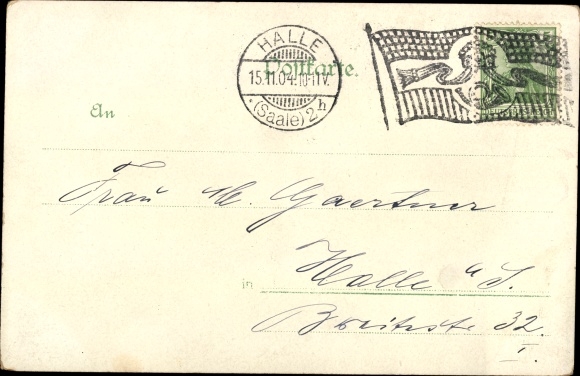 HALLE
Postkarte.
15.11.04.10-11V.
*(Saale) 2 h
An
Frau M. Gaertner
in Halle a/S.
Breitestr 32.
I.